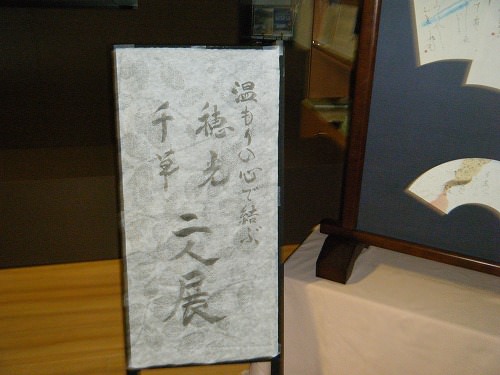 温もりの心で結ぶ
穂光
千草
二人展